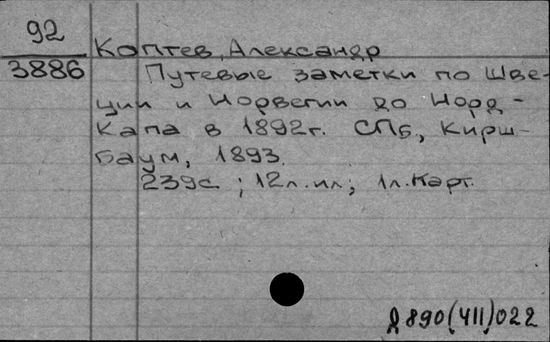 92
3886
Коптев, Александр
Путевые заметки по Шве-
ции и Норвегии до Норд-
Капа в 1892г. СПб, Кирш-
баум, 1893.
239с ; 12л.ил; 1л.карт.
Д890(411)022